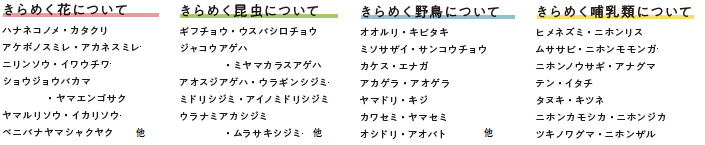 きらめく花について
ハナネコノメ・カタクリ
アケボノスミレ・アカネスミレ・
ニリンソウ・イワウチワ・
ショウジョウバカマ
・ヤマエンゴサク
ヤマルリソウ・イカリソウ・
ベニバナヤマシャクヤク 他
きらめく昆虫について
ギフチョウ・ウスバシロチョウ
ジャコウアゲハ
・ミヤマカラスアゲハ
アオスジアゲハ・ウラギンシジミ・
ミドリシジミ・アイノミドリシジミ
ウラナミアカシジミ
・ムラサキシジミ・ 他
きらめく野鳥について
オオルリ・キビタキ
ミソサザイ・サンコウチョウ
カケス・エナガ
アカゲラ・アオゲラ
ヤマドリ・キジ
カワセミ・ヤマセミ
オシドリ・アオバト 他
きらめく哺乳類について
ヒメネズミ・ニホンリス
ムササビ・ニホンモモンガ・
ニホンノウサギ・アナグマ
テン・イタチ
タヌキ・キツネ
ニホンカモシカ・ニホンジカ
ツキノワグマ・ニホンザル